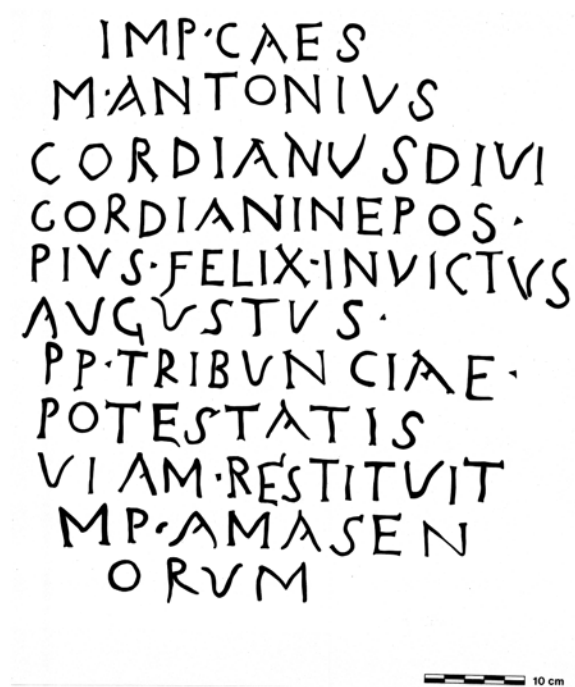 IMP·CAES
M·ANTONIVS
CORDIANVS DIVI
CORDIANINEPOS·
PIVS·FELIX·INVICTVS
AVGVSTVS·
PP·TRIBVNCIAE·
POTESTATIS
VIAM·RESTITVIT
MP·AMASEN
ORVM
10 cm